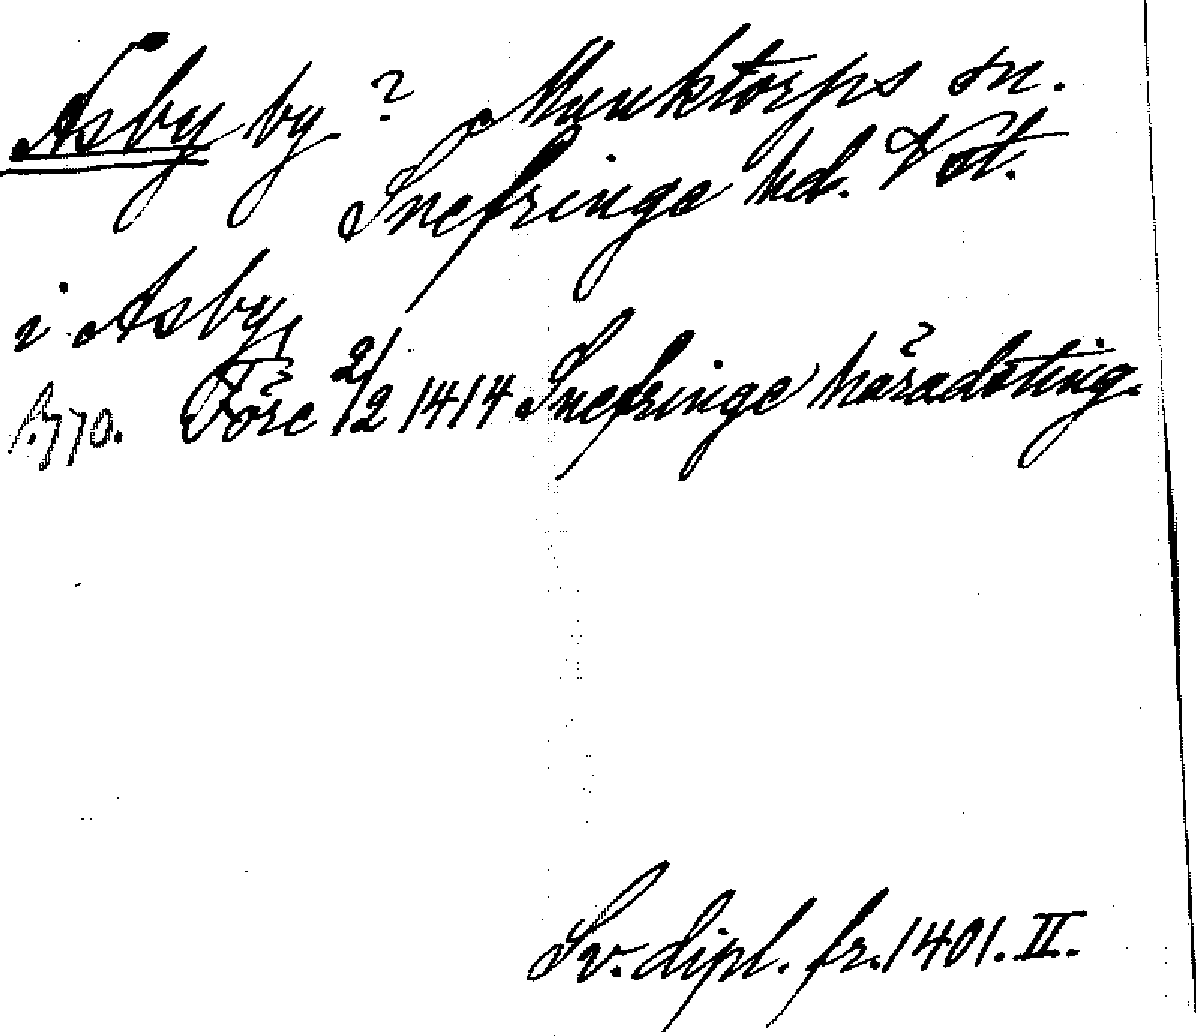 Asby by? Munktorps sn.
Snefringe hd. Vst.
i Asby,
Före 2/2 1414 Snefringe häradsting.
Sv. dipl. fr. 1401. II.